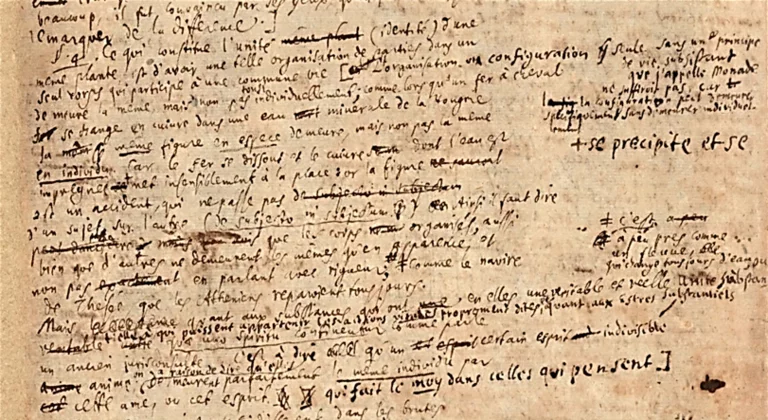 beaucoup, il fut convaincu par ses yeux qu'
remarquer de la difference.
§ 4. Ce qui constitue l'unité (identité) d'une
même plante est d'avoir une telle organisation de parties dans un
seul corps qui participe à une commune vie [ L'organisation ou configuration seule, sans un principe
de vie subsistant
que j'appelle Monade
ne suffiroit pas, car
la configuration peut demeurer
specifiquement sans demeurer individuel-
lement
demeure la même mais non pas individuellement; comme lorsqu'un fer à cheval
se change en cuivre dans une eau minerale de la Hongrie
la même figure en espece demeure, mais non pas la même
en individu car le fer se dissout et le cuivre dont l'eau est
+ se precipite et se
impregnée met insensiblement à la place or la figure
est un accident, qui ne passe pas
d'un sujet à l'autre (de subjecto in subjectum) Ainsi il faut dire
que les corps organisés, aussi
bien que d'autres ne demeurent les mêmes qu'en apparence, et
non pas en parlant avec rigueur ‡ comme le navire
‡ c'est
à peu près comme
un fleuve
qui change tousjours d'eau
de Thesée que les Atheniens reparoient tousjours.
Mais quant aux substances, qui ont en elles une veritable et reelle unité substantielle
à qui puissent appartenir les actions vitales proprement dites, quant aux estres substantiels
quae uno spiritu continentur comme parle
un ancien jurisconsulte, c'est à dire qu'un certain esprit indivisible
anime, on a raison de dire qu'elles demeurent parfaitement le même individu par
cette ame, ou cet esprit qui fait le moy dans celles qui pensent.]
dans les brutes